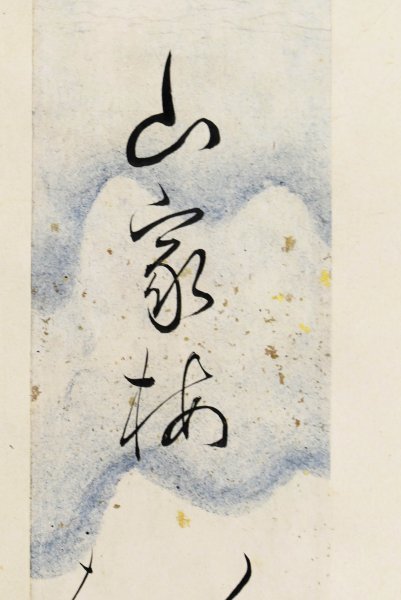 山家梅